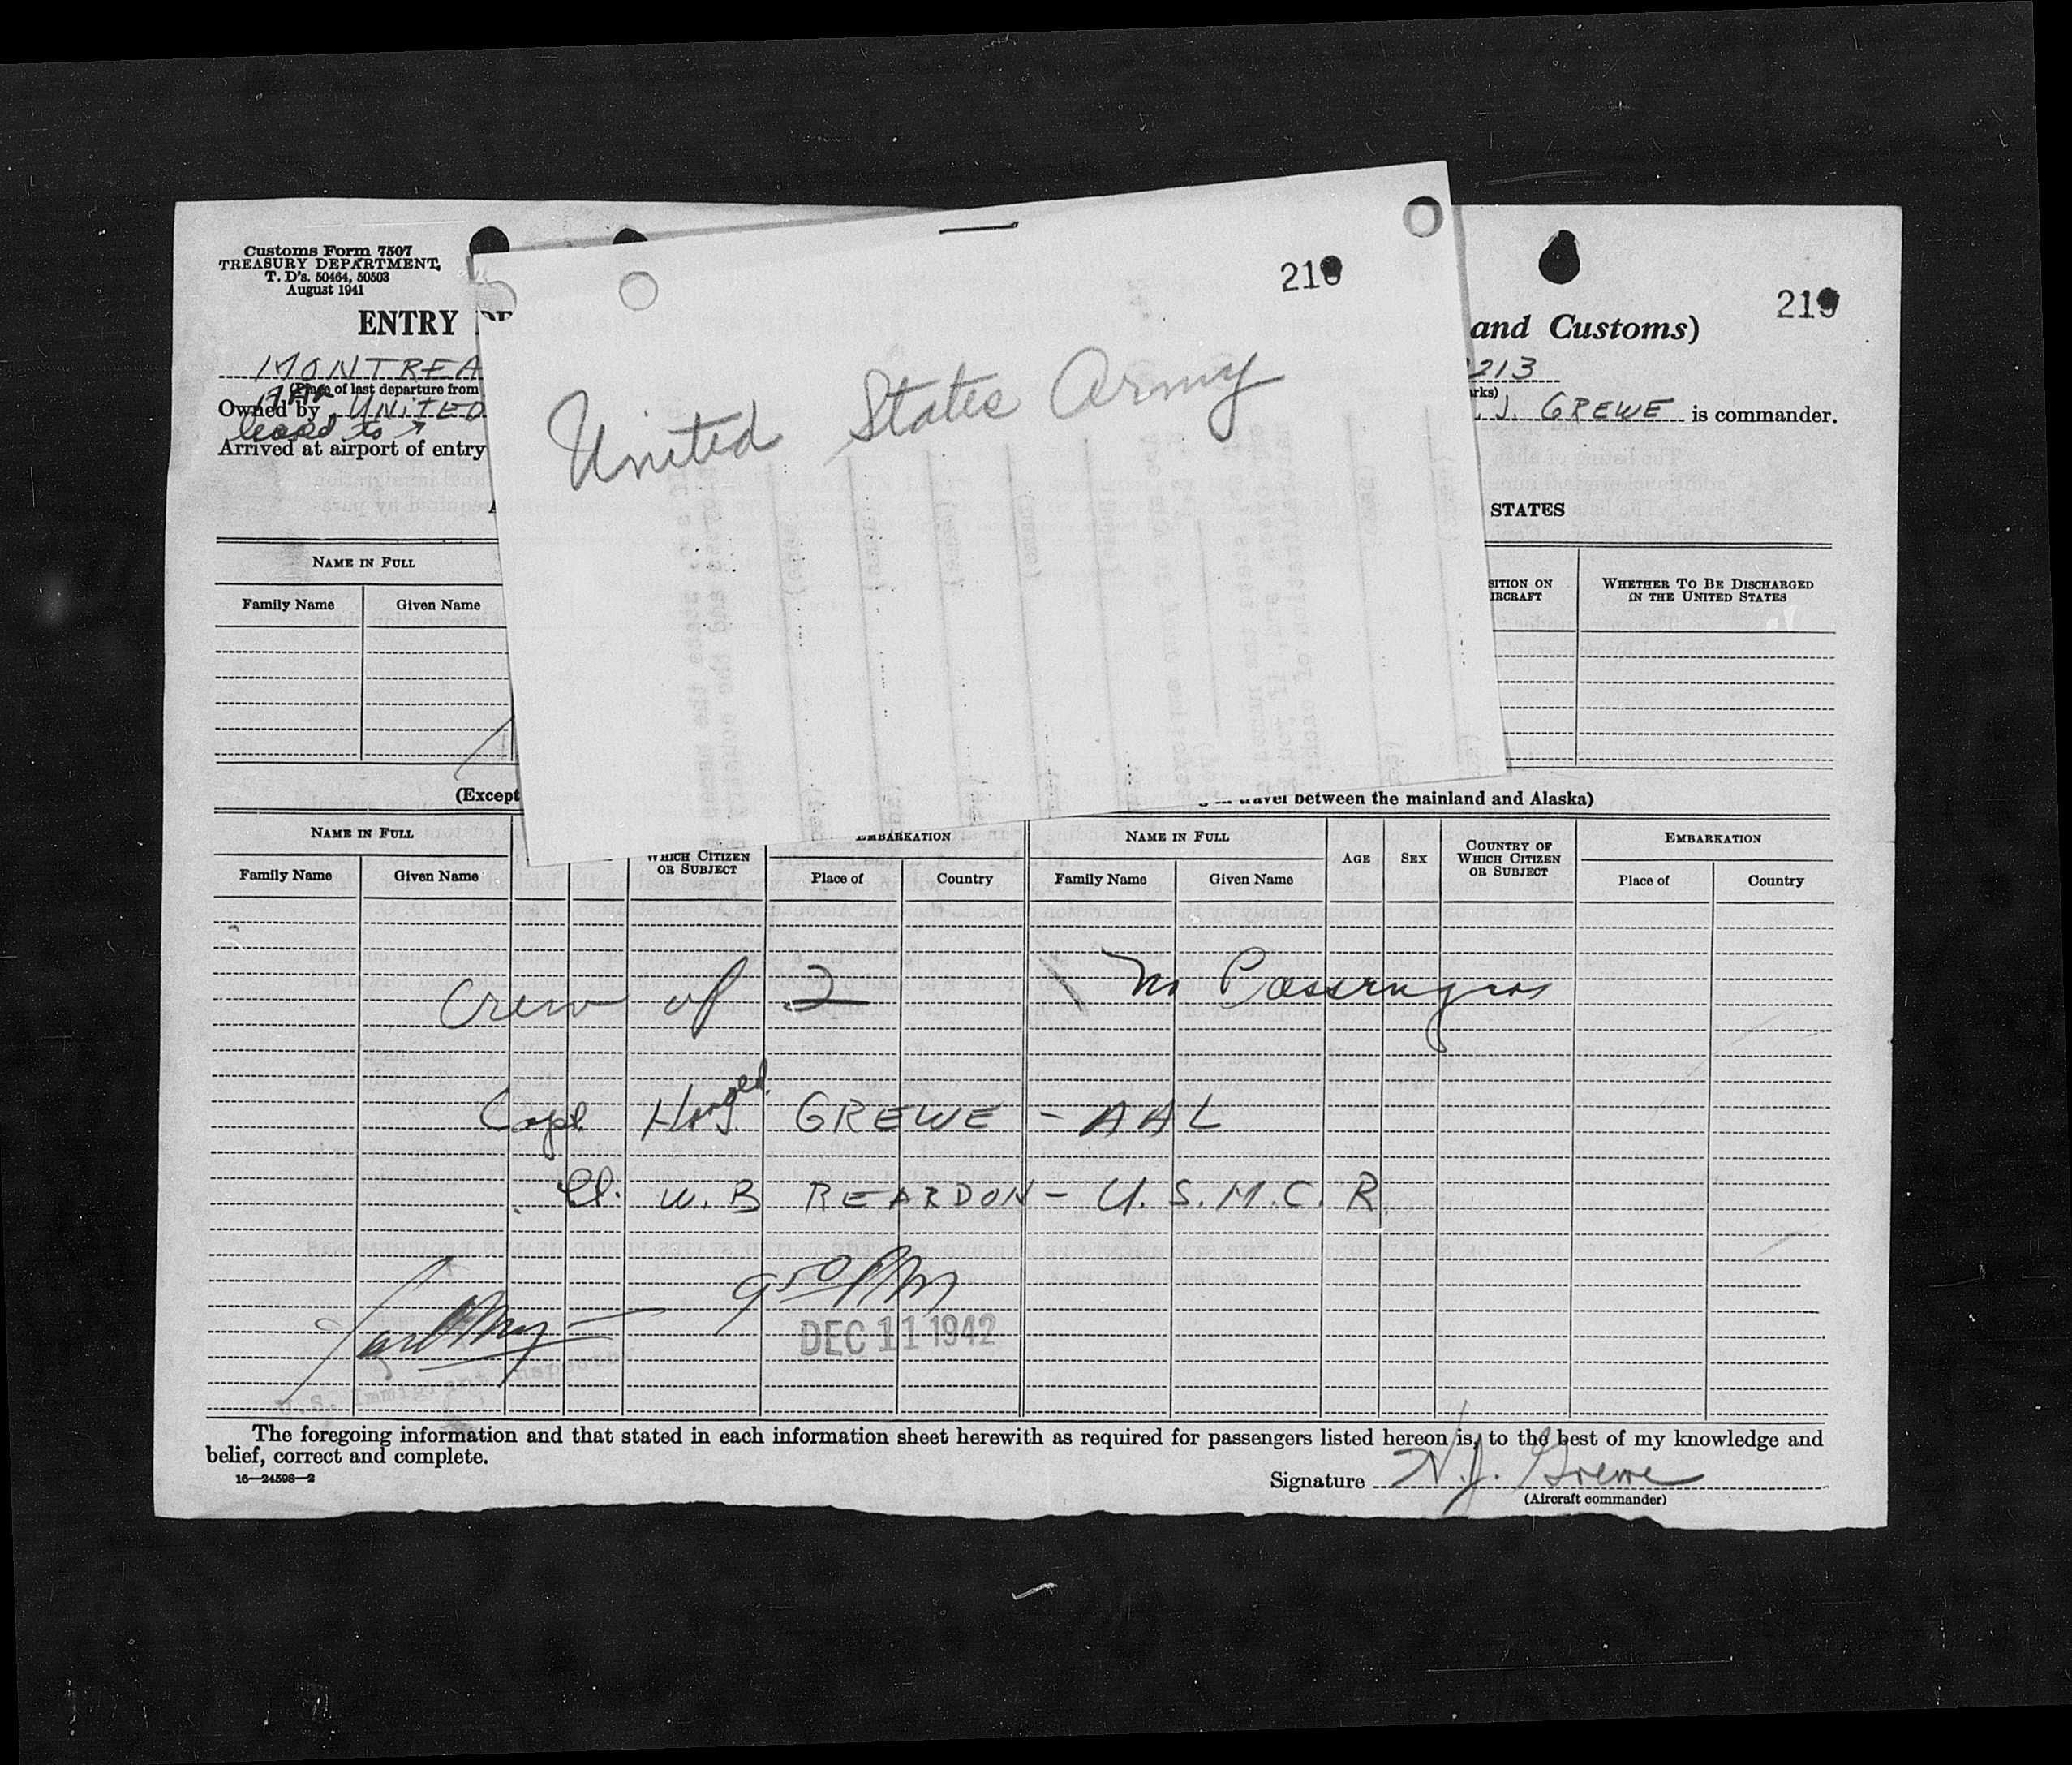 Customs Form 7507
TREASURY DEPARTMENT,
T. D's. 50464, 50503
August 1941
219
ENTRY DE
and Customs)
MONTREA
213
(Place of last departure from
rks)
Owned by UNITED
J. GREWE is commander.
leased to
Arrived at airport of entry
STATES
210
United States Army
NAME IN FULL
SITION ON
IRCRAFT
WHETHER TO BE DISCHARGED
IN THE UNITED STATES
Family Name Given Name
(Except
travel between the mainland and Alaska)
NAME IN FULL
WHICH CITIZEN
OR SUBJECT
EMBARKATION
NAME IN FULL
AGE SEX
COUNTRY OF
WHICH CITIZEN
OR SUBJECT
EMBARKATION
Family Name Given Name Place of Country Family Name Given Name Place of Country
Crew of 2 No Passengers
Capt GREWE - AAL
W. B REARDON - U. S. M. C. R.
9 50 PM
DEC 11 1942
U.S. Immigrant Inspector
The foregoing information and that stated in each information sheet herewith as required for passengers listed hereon is, to the best of my knowledge and
belief, correct and complete.
16—24598—2
Signature H. J. Grewe
(Aircraft commander)